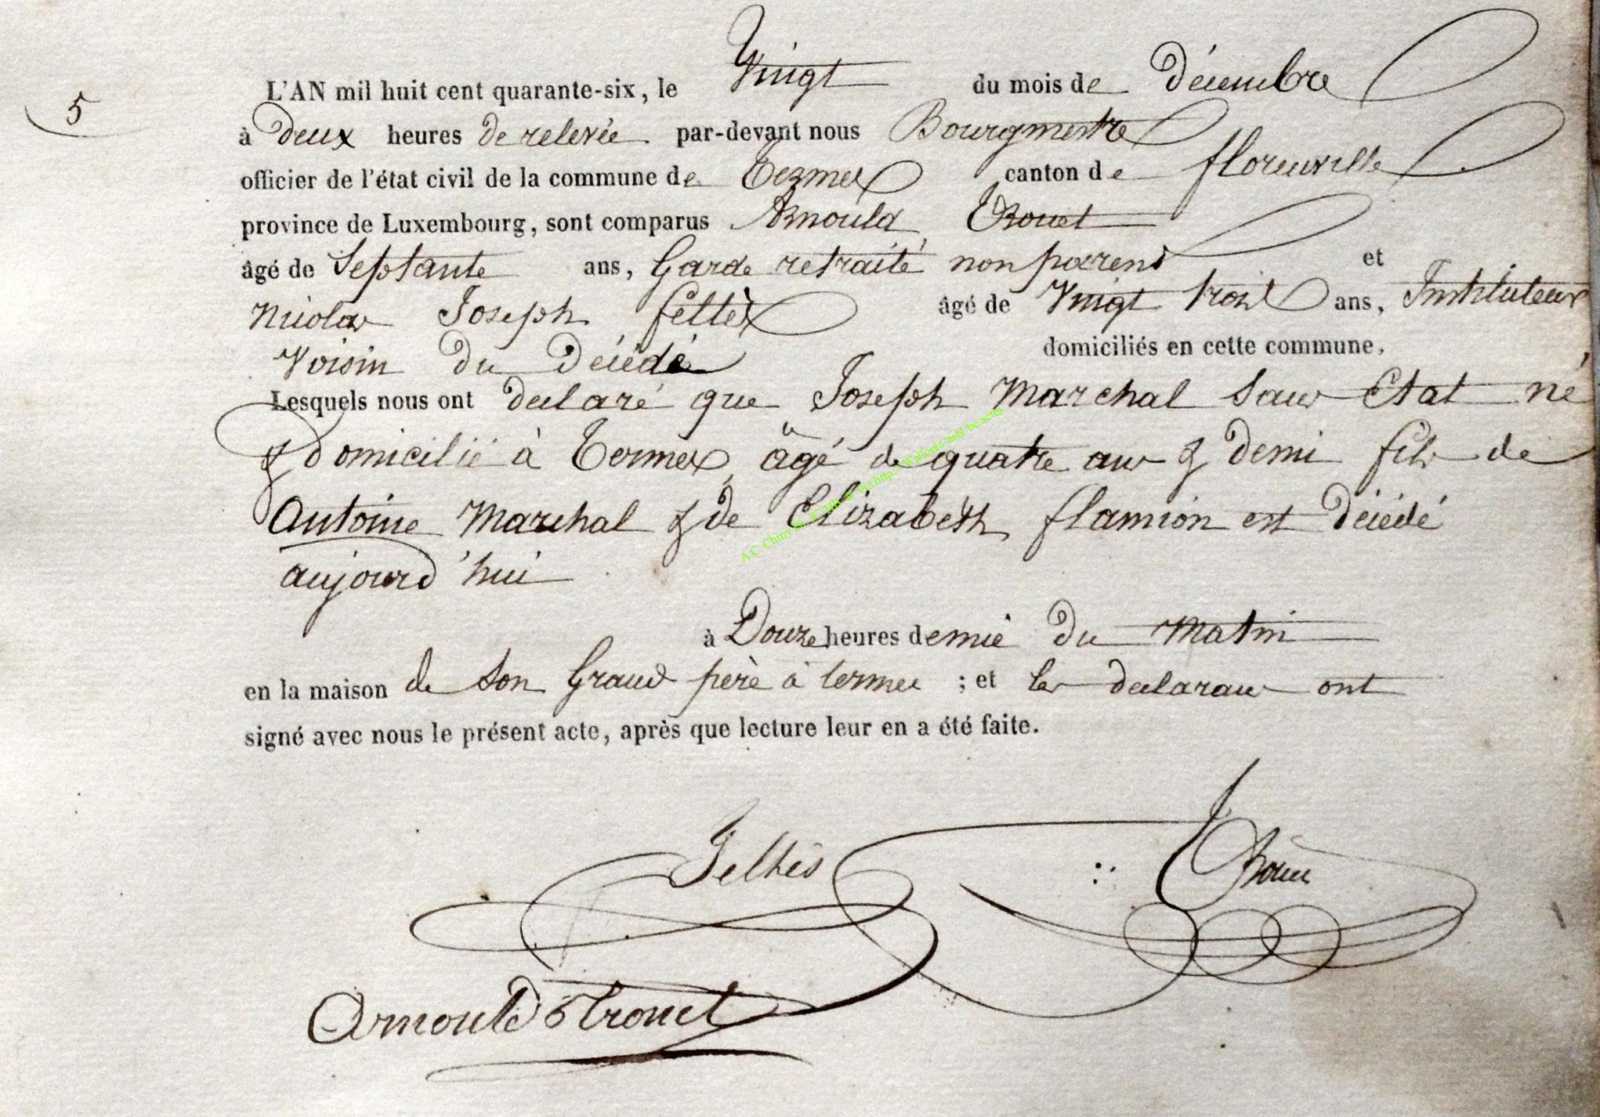 5
L'AN mil huit cent quarante-six, le Vingt du mois de décembre
à deux heures de relevée par-devant nous Bourgmestre
officier de l'état civil de la commune de Termes canton de florenville
province de Luxembourg, sont comparus Arnould Trouet
âgé de Septante ans, Garde retraité non parent et
Nicolas Joseph feltès âgé de Vingt trois ans, Instituteur
Voisin du Décédé domiciliés en cette commune,
Lesquels nous ont déclaré que Joseph Marchal Sans Etat né
& domicilié à Termes, âgé de quatre ans & demi fils de
Antoine Marchal & de Elizabeth flamion est décédé
aujourd'hui
à Douze heures demie du Matin
en la maison de son Grand père à termes ; et les déclarans ont
signé avec nous le présent acte, après que lecture leur en a été faite.
Feltès
Arnould Trouet